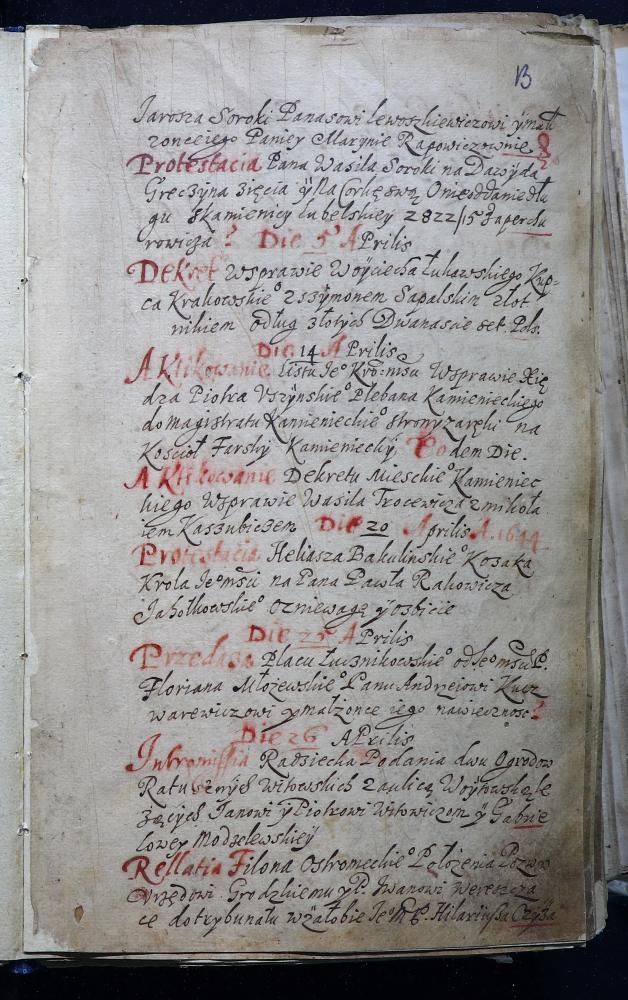 13
Jarosza Soroki Panasowi Lewoszkiewiczowi ÿ małż
zonce jego Paniey Marynie Rapowiczownie
Protestacia Pana Wasila Soroki na Dawÿda
Greczyna zięcia ÿ Na Corkę swą O nieoddanie dłu
gu Skamienicy Lubelskiey 2822/15
rowicza Die 5 APrilis
Dekret Wsprawie Woÿciecha Łukawskiego Kup=
ca Krakowskieº z Szÿmonem Sapalskim złot
nikiem o dług złotych Dwanascie set. Pols.
Die 14 APrilis
AKtikowanie Listu Jeº Kro: mśu Wsprawie Xię
dza Piotra Uszÿnskieº Plebana Kamienieckiego
do magistratu Kamienieckieº strony zaręki na
Kosciół Farsky Kamieniecky Eodem Die.
AKtikowanie Dekretu Mieskieº Kamieniec
kiego Wsprawie Wasila Trocewicza z mikoła
iem Kaszubiczem Die 20 Aprilis A. 1644
Protestacia Heliasza Bakulinskieº Kozaka
Krola Jeºmśu na Pana Pawła Rakowicza
Jahołkowskieº o zniewagę ÿ o zbicie
Die 25 APrilis
Przedaza Placu Łucznikowskieº od Jeºmśu P.
Floriana Młozewskieº Panu Andrzeiowi Kucz
warewiczowi ÿ małżonce iego na wiecznosc
Die 26 APrilis
Intromissia Radziecka Podania dwu Ogrodow
Ratusznych Witowskich za ulicą Woÿtowską le
żących Janowi ÿ Piotrowi Witowiczom ÿ Gabrie
lowey Modzelewskieÿ
Rellatia Filona Ostromeckieº Położenia Pozwu
Urzędowi Grodzkiemu ÿ P. Iwanowi Wereszcza
ce do trybunału w żałobie Jeº M P. Hilariusza Czyża